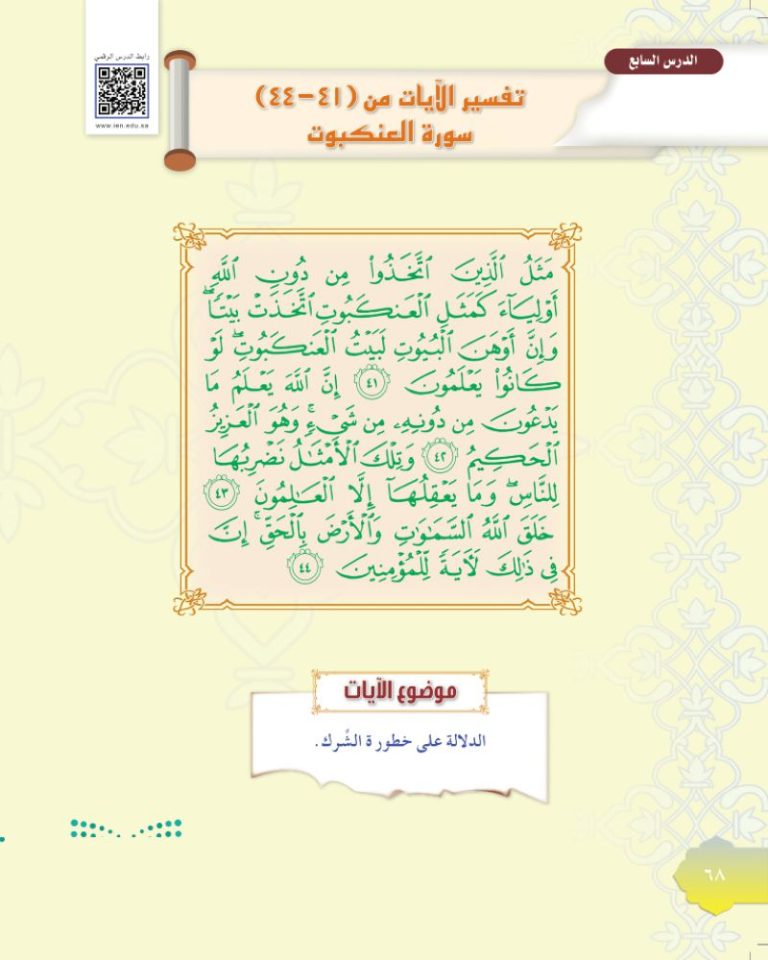 رابط الدرس الرقمي
www.ien.edu.sa
الدرس السابع
تفسير الآيات من (٤١-٤٤)
سورة العنكبوت
مَثَلُ ٱلَّذِينَ ٱتَّخَذُواْ مِن دُونِ ٱللَّهِ
أَوۡلِيَآءَ كَمَثَلِ ٱلۡعَنكَبُوتِ ٱتَّخَذَتۡ بَيۡتٗاۖ
وَإِنَّ أَوۡهَنَ ٱلۡبُيُوتِ لَبَيۡتُ ٱلۡعَنكَبُوتِۖ لَوۡ
كَانُواْ يَعۡلَمُونَ ٤١ إِنَّ ٱللَّهَ يَعۡلَمُ مَا
يَدۡعُونَ مِن دُونِهِۦ مِن شَيۡءٖۚ وَهُوَ ٱلۡعَزِيزُ
ٱلۡحَكِيمُ ٤٢ وَتِلۡكَ ٱلۡأَمۡثَٰلُ نَضۡرِبُهَا
لِلنَّاسِۖ وَمَا يَعۡقِلُهَآ إِلَّا ٱلۡعَٰلِمُونَ ٤٣
خَلَقَ ٱللَّهُ ٱلسَّمَٰوَٰتِ وَٱلۡأَرۡضَ بِٱلۡحَقِّۚ إِنَّ
فِي ذَٰلِكَ لَأٓيَةٗ لِّلۡمُؤۡمِنِينَ ٤٤
موضوع الآيات
الدلالة على خطورة الشِّرك.
٦٨